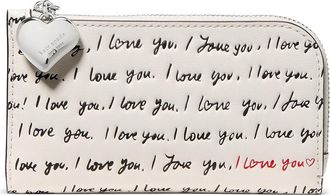 kate spade
I love you, I love you, I love you
I love you. I love you. I love you. I love
you! I love you, I love you, I love you, I love you,
I love you, I love you. I love you. I love you.
love you, I love you, I love you, I love you♡